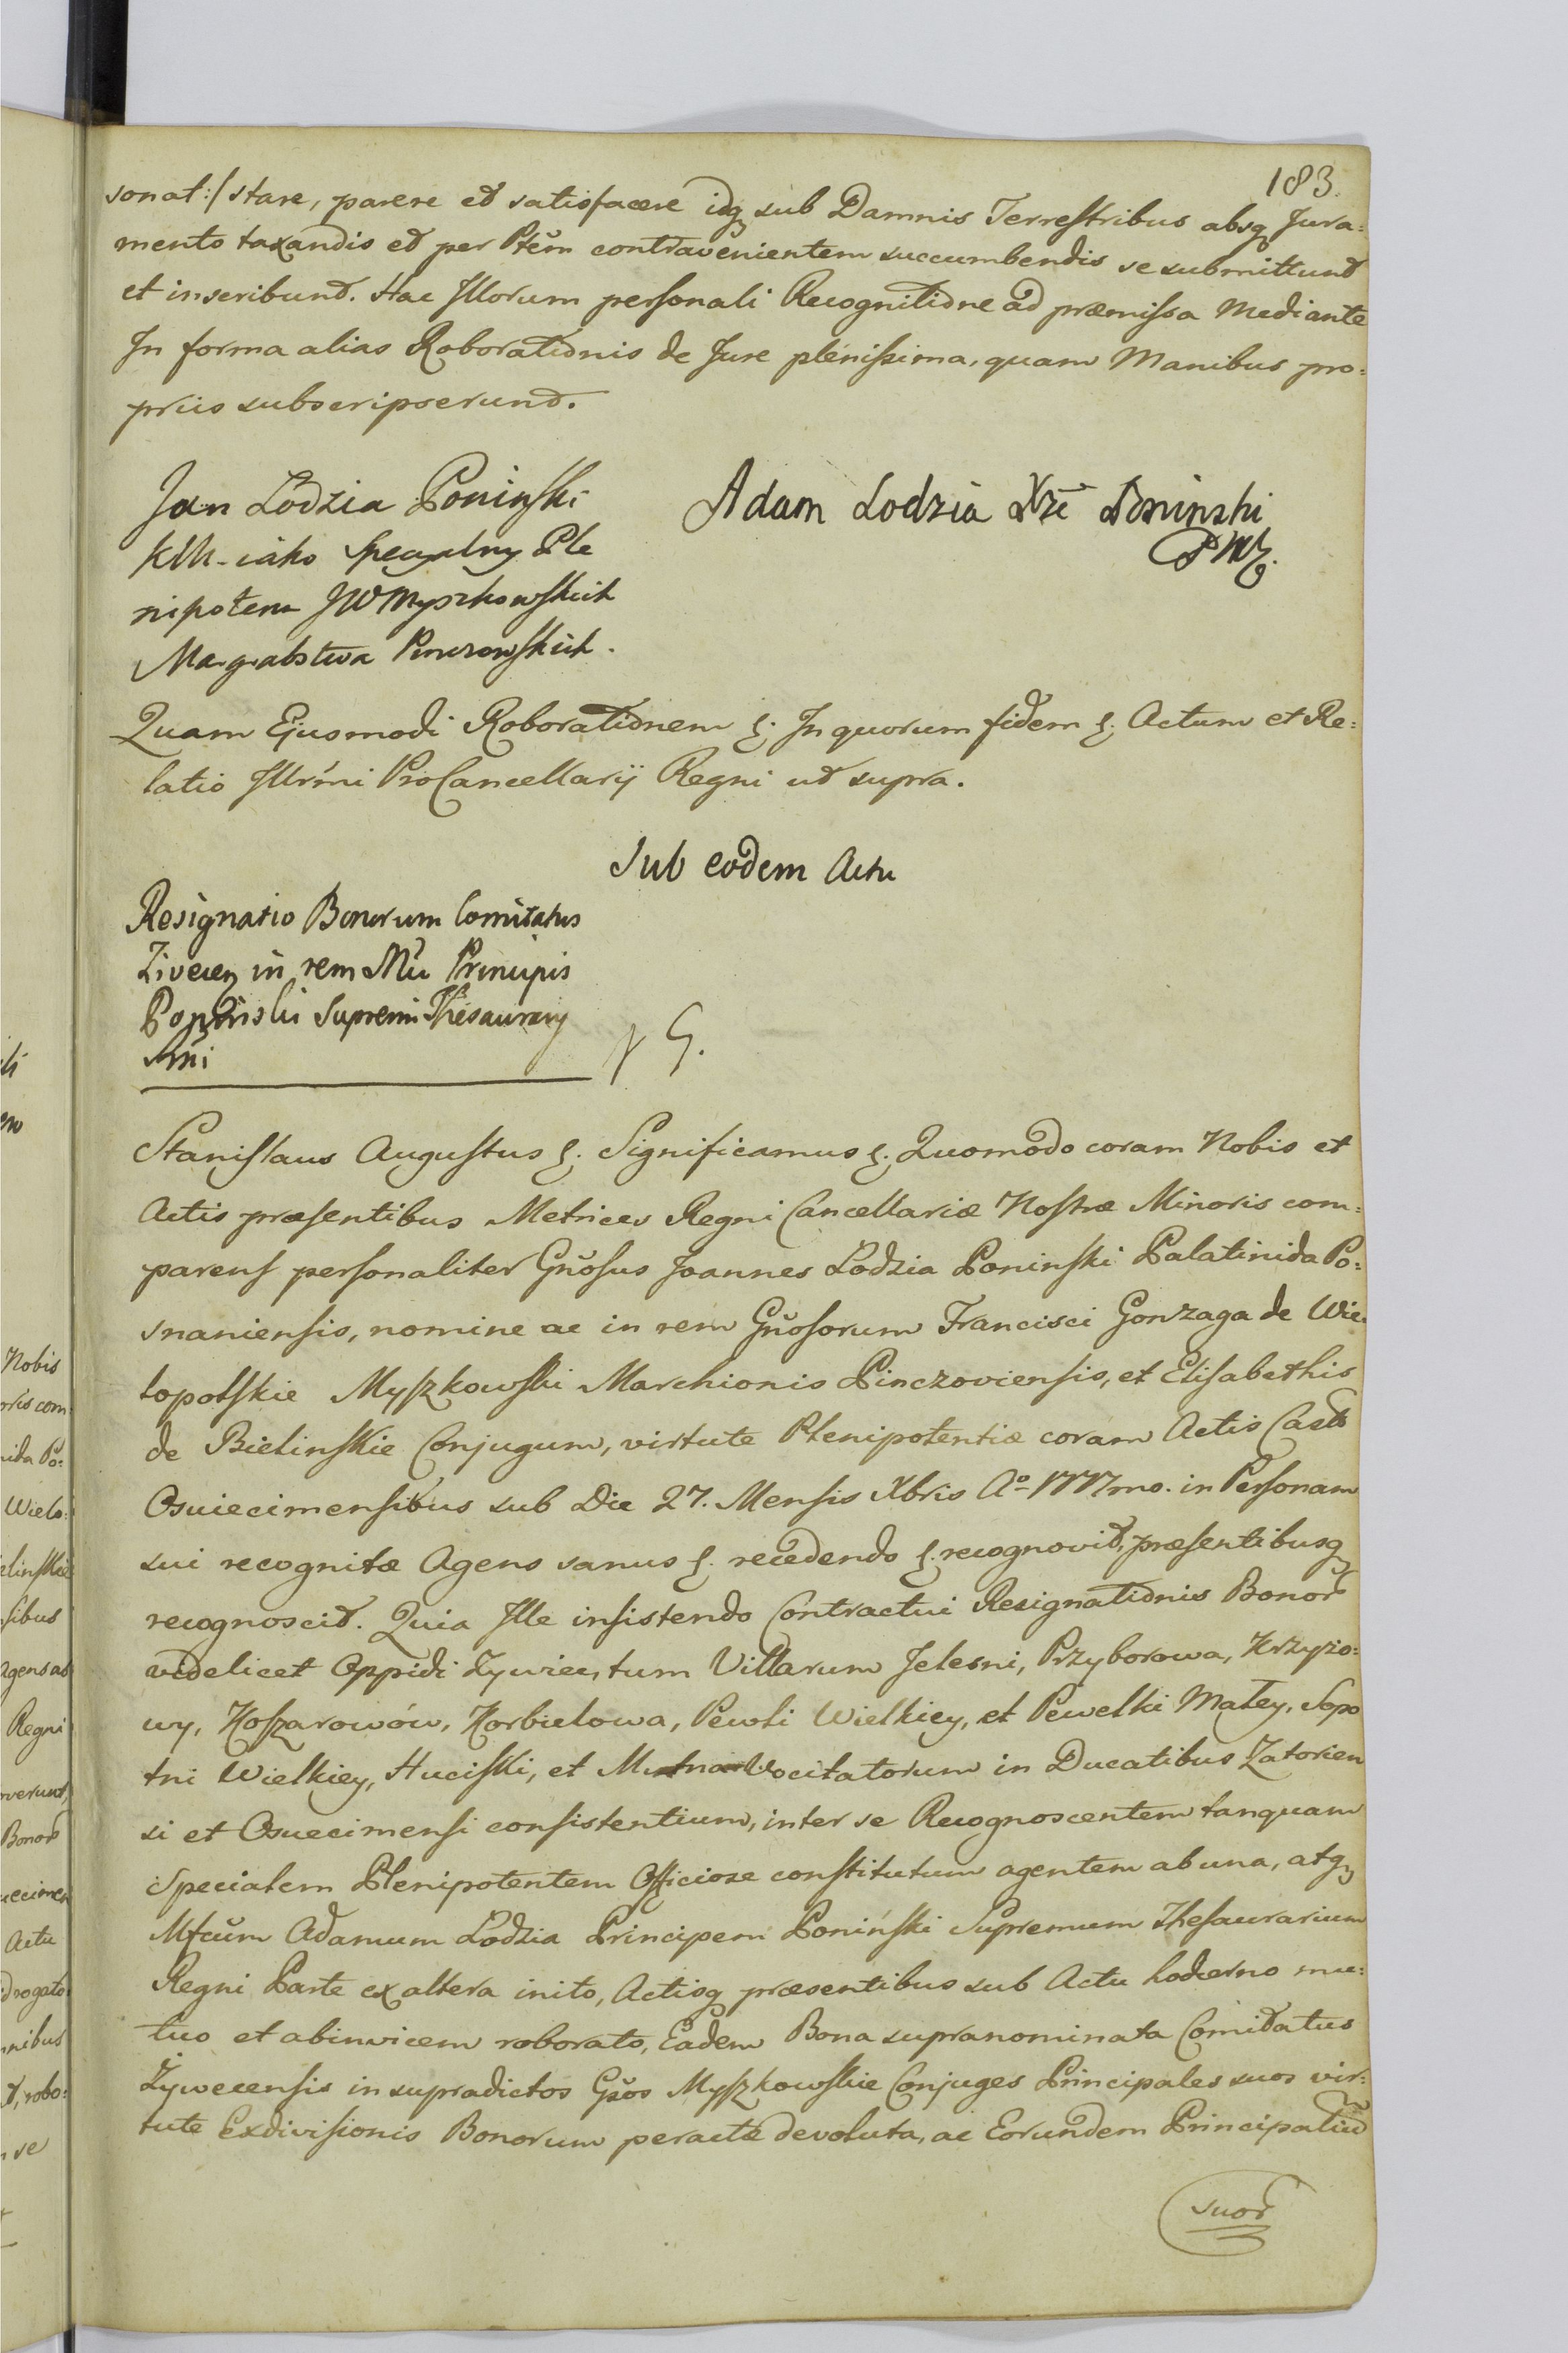 183.
sonat:/ stare, parere et satisfacere idq sub Damnis Terrestribus absq Jura:
mento taxandis et per Ptem contravenientem succumbendis se submittunt
et inscribunt. Hac Illorum personali Recognitione ad præmissa Mediante
In forma alias Roborationis de Jure plenissima, quam Manibus pro:
priis subscripserunt.
Jan Łodzia Poninski
KM - iako specyalny Ple
nipotent JW Myszkowskich
Margrabstwa Pinczowskich.
Adam Lodzia Xże Poninski
PWK.
Quam Ejusmodi Roborationem &. In quorum fidem &. Actum et Re:
latio Illrmi ProCancellarij Regni ut supra.
Sub eodem Actu
Resignatio Bonorum Comitatus
Zivecen in rem Mci Principis
Poninski Supremi Thesaurarij
Rni
Stanislaus Augustus &. Significamus &. Quomodo coram Nobis et
Actis præsentibus Metrices Regni Cancellariæ Nostræ Minoris com:
parens personaliter Gnosus Joannes Łodzia Poninski Palatinida Po:
snaniensis, nomine ac in rem Gnosorum Francisci Gonzaga de Wie
lopolskie Myszkowski Marchionis Pinczoviensis, et Elisabethis
de Bielinskie Conjugum, virtute Plenipotentiæ coram Actis Castr
Osviecimensibus sub Die 27. Mensis Xbris Ao 1777mo. in Personam
sui recognitæ Agens sanus &. recedendo &. recognovit, præsentibusq
recognoscit. Quia Ille insistendo Contractui Resignationis Bonor
videlicet Oppidi Zywiec, tum Villarum Jelesni, Przyborowa, Krzyzo:
wy, Koszarowów, Korbielowa, Pewli Wielkiey, et Pewelki Małey, Sopo
tni Wielkiey, Huciski, et Mutna Vocitatorum in Ducatibus Zatorien
si et Osviecimensi consistentium, inter se Recognoscentem tanquam
Specialem Plenipotentem Officiose constitutum agentem ab una, atq
Mfcum Adamum Łodzia Principem Poniński Supremum Thesaurarium
Regni Parte ex altera inito, Actisq præsentibus sub Actu hodierno mu:
tuo et abinvicem roborato, Eadem Bona supranominata Comitatus
Zywecensis in supradictos Gsos Myszkowskie Conjuges Principales suos vir:
tute Exdivisionis Bonorum peractæ devoluta, ac Eorundem Principaliu
suor